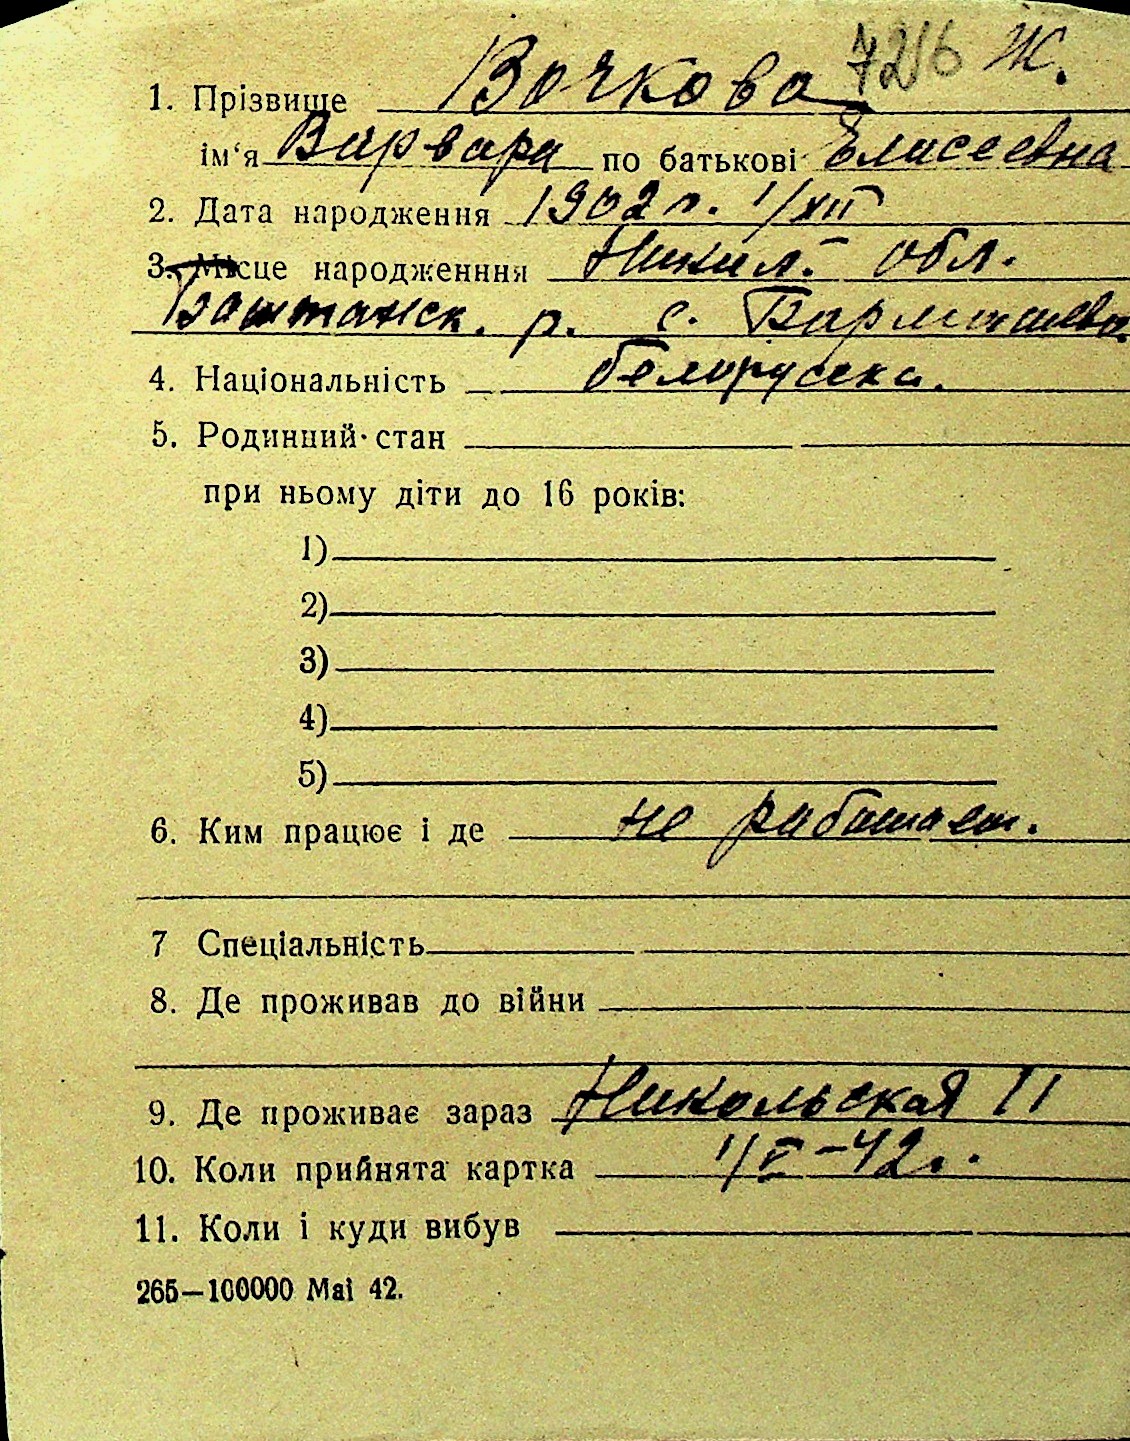 726 Ж.
1. Прізвище Вочкова
ім'я Варвара по батькові Елисеевна
2. Дата народження 1902 г. 1/XII
3. Місце народженння Никол. обл.
Баштанск. р. с. Бармашово
4. Національність белоруска.
5. Родинний стан
при ньому діти до 16 років:
1)
2)
3)
4)
5)
6. Ким працює і де не работает.
7 Спеціальність
8. Де проживав до війни
9. Де проживає зараз Никольская 11
10. Коли прийнята картка 1/V-42г.
11. Коли і куди вибув
265—100000 Mai 42.